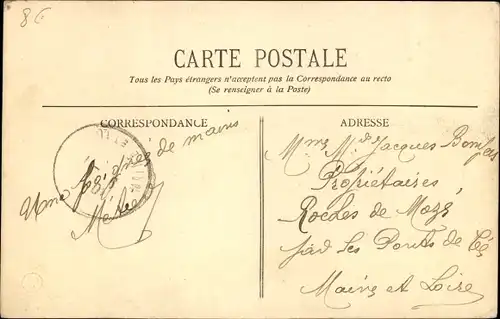 86
CARTE POSTALE
Tous les Pays étrangers n'acceptent pas la Correspondance au recto
(Se renseigner à la Poste)
CORRESPONDANCE
ADRESSE
Une poignée de mains
Mme Jacques
Propiétaires
Roches de
par les Ponts de Cé
Maine et Loire